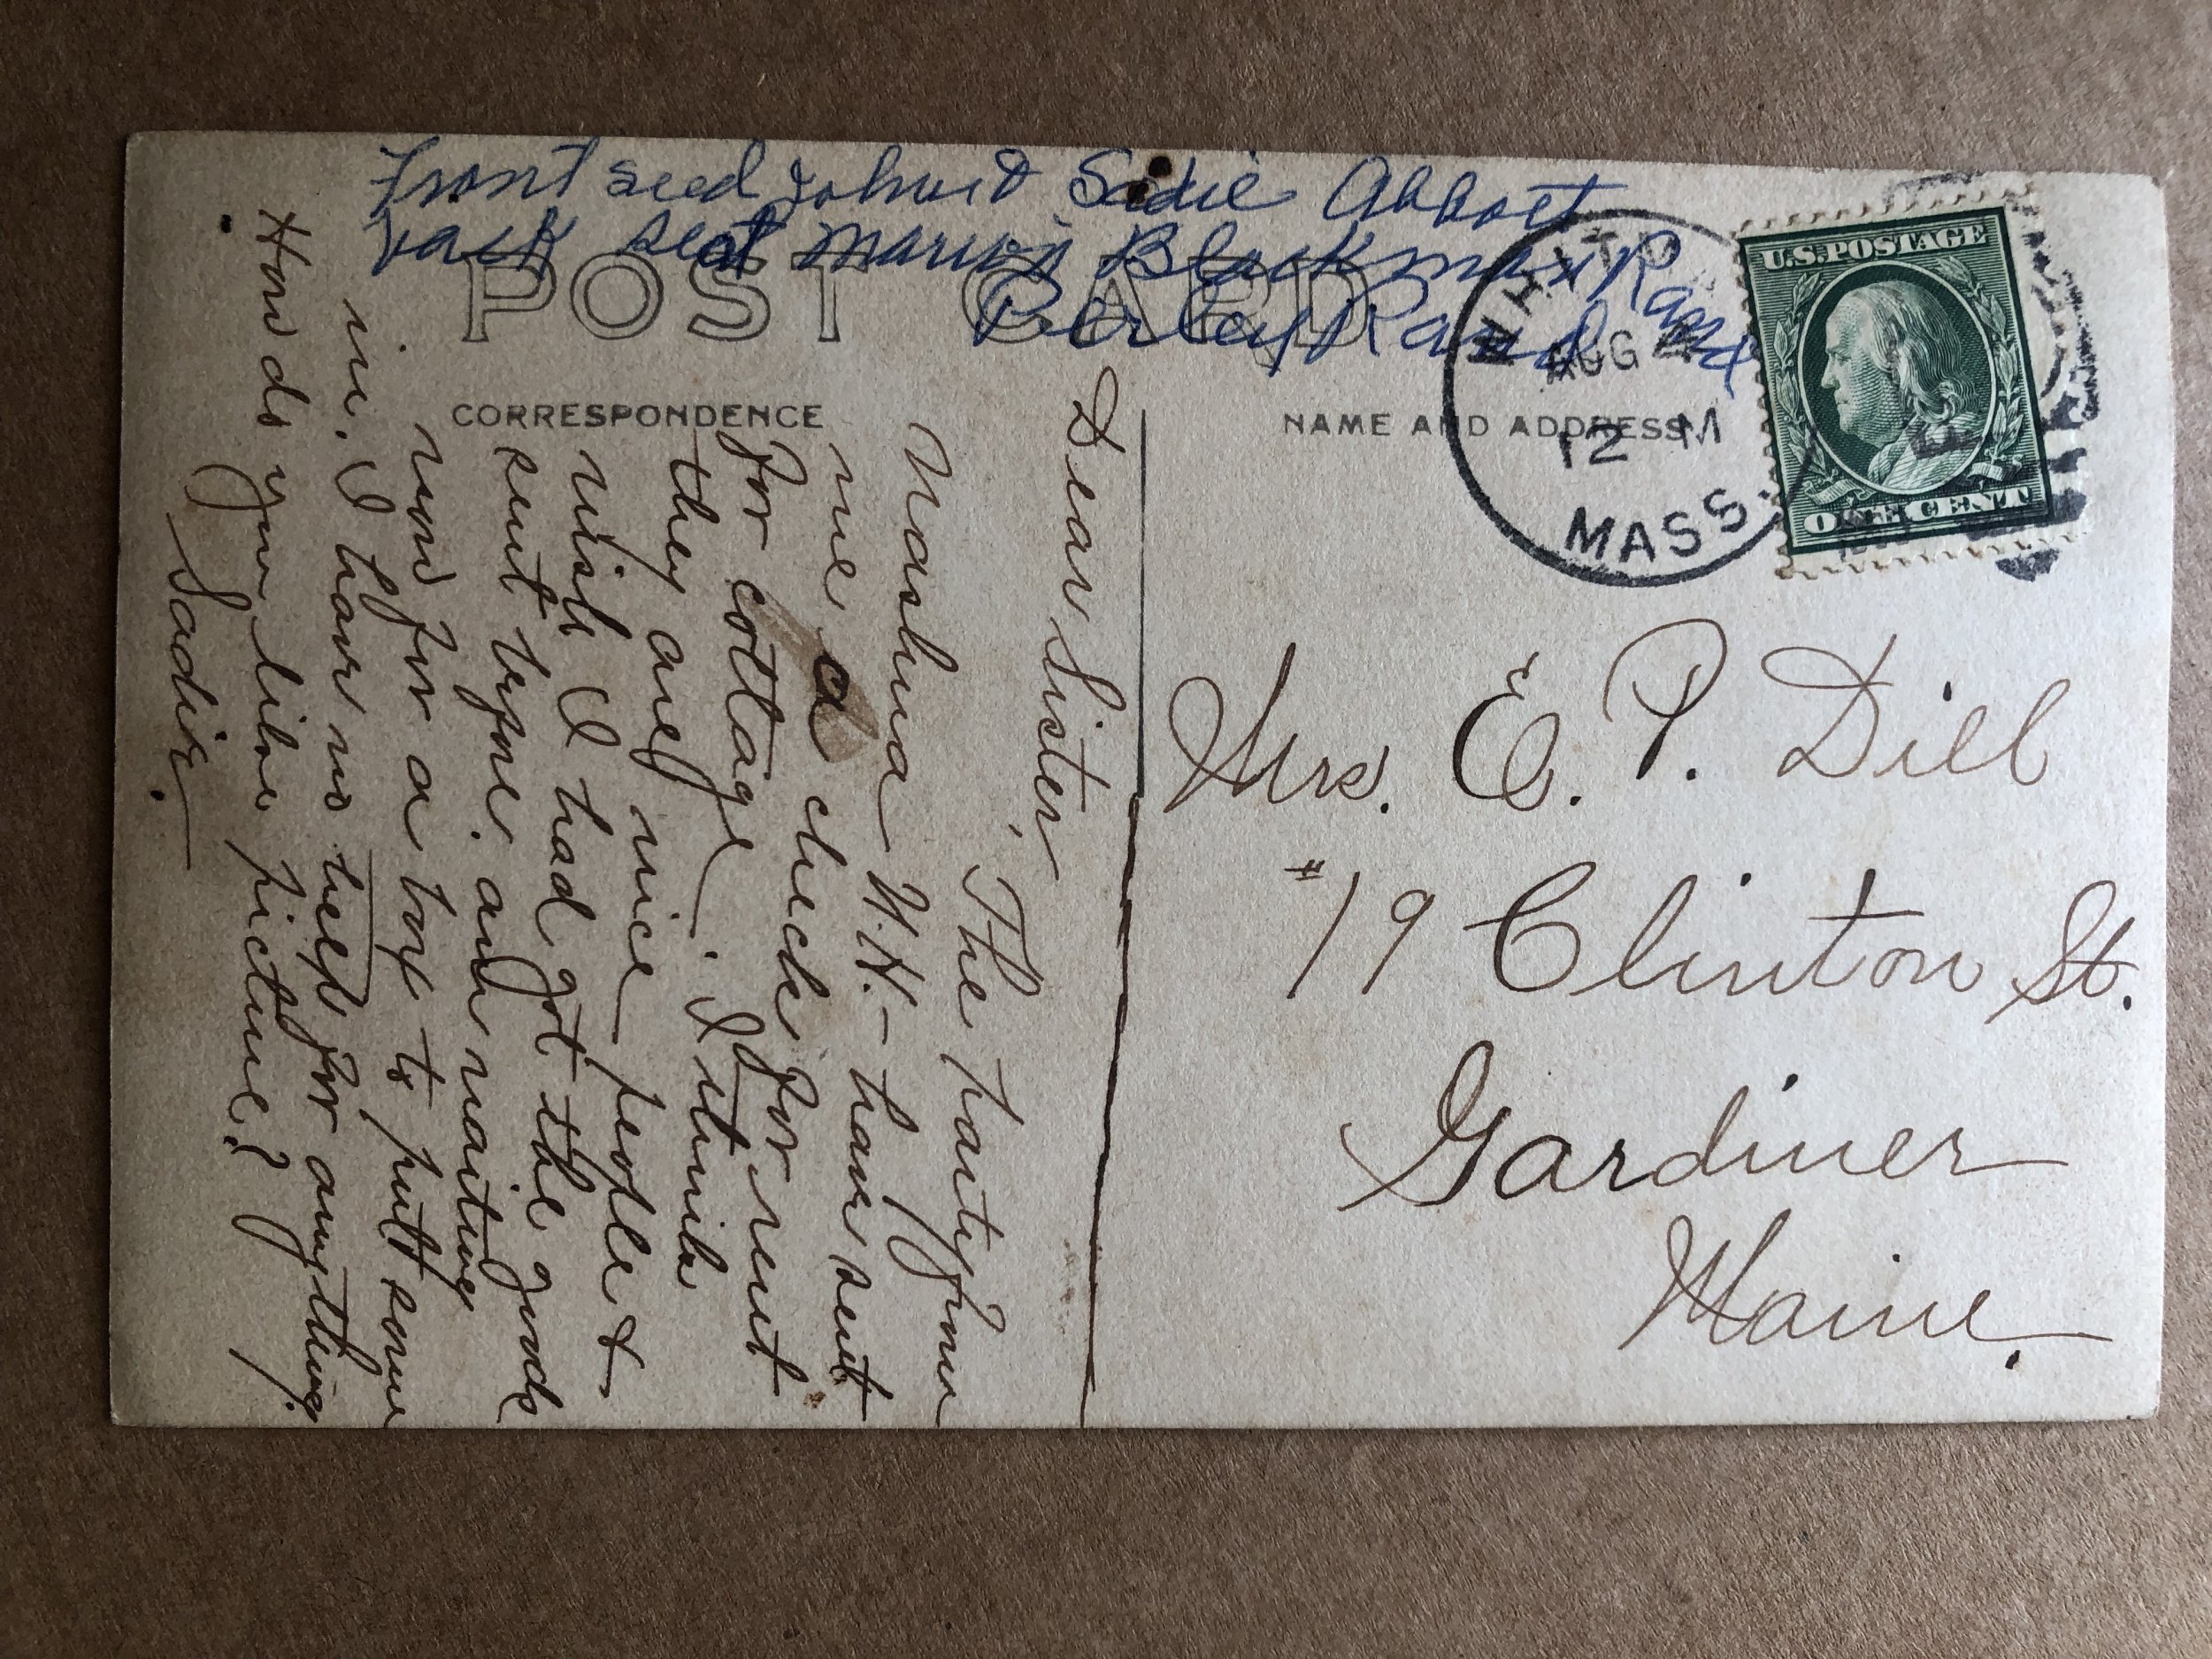 Front seed John & Sadie Abbott
back seat Marvis Blackman Rand
Perley Rand
POST CARD
CORRESPONDENCE
NAME AND ADDRESS
WHITM
AUG
12 M
MASS.
U.S. POSTAGE
ONE CENT
Mrs. E. P. Dill
#19 Clinton St.
Gardiner
Maine.
Dear Sister,
The party from
Nashua N.H. - have sent
me a check for rent
for cottage. I think
they are nice people &
wish I had got the goods
sent before. am waiting
now for a box to putt some
in. I have no help for anything.
How do you like picture?
Sadie.